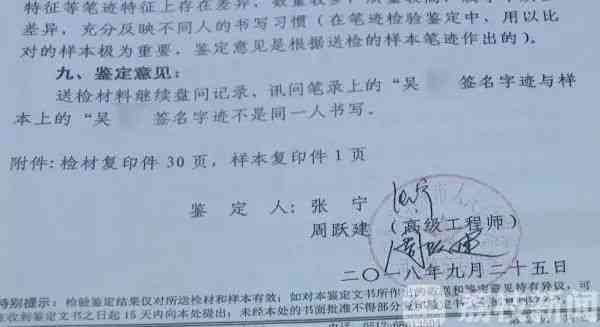 特征等笔迹特征上存在差异，
差异，充分反映不同人的书写习惯（在笔迹检验鉴定中，用以比
对的样本极为重要，鉴定意见是根据送检的样本笔迹作出的）。
九、鉴定意见：
送检材料继续盘问记录、讯问笔录上的“吴 签名字迹与样
本上的“吴 签名字迹不是同一人书写。
附件：检材复印件 30 页，样本复印件 1 页
鉴 定 人：张 宁
周跃建（高级工程师）
周跃建
二〇一八年九月二十五日
特别提示：检验鉴定结果仅对所送检材和样本有效；如对本鉴定文书所作出的 和鉴定意见持有异议，可
收到鉴定文书之日起 15 天内向本处提出；未经本处的书面批准不得部分
电话：0512
荔枝新闻